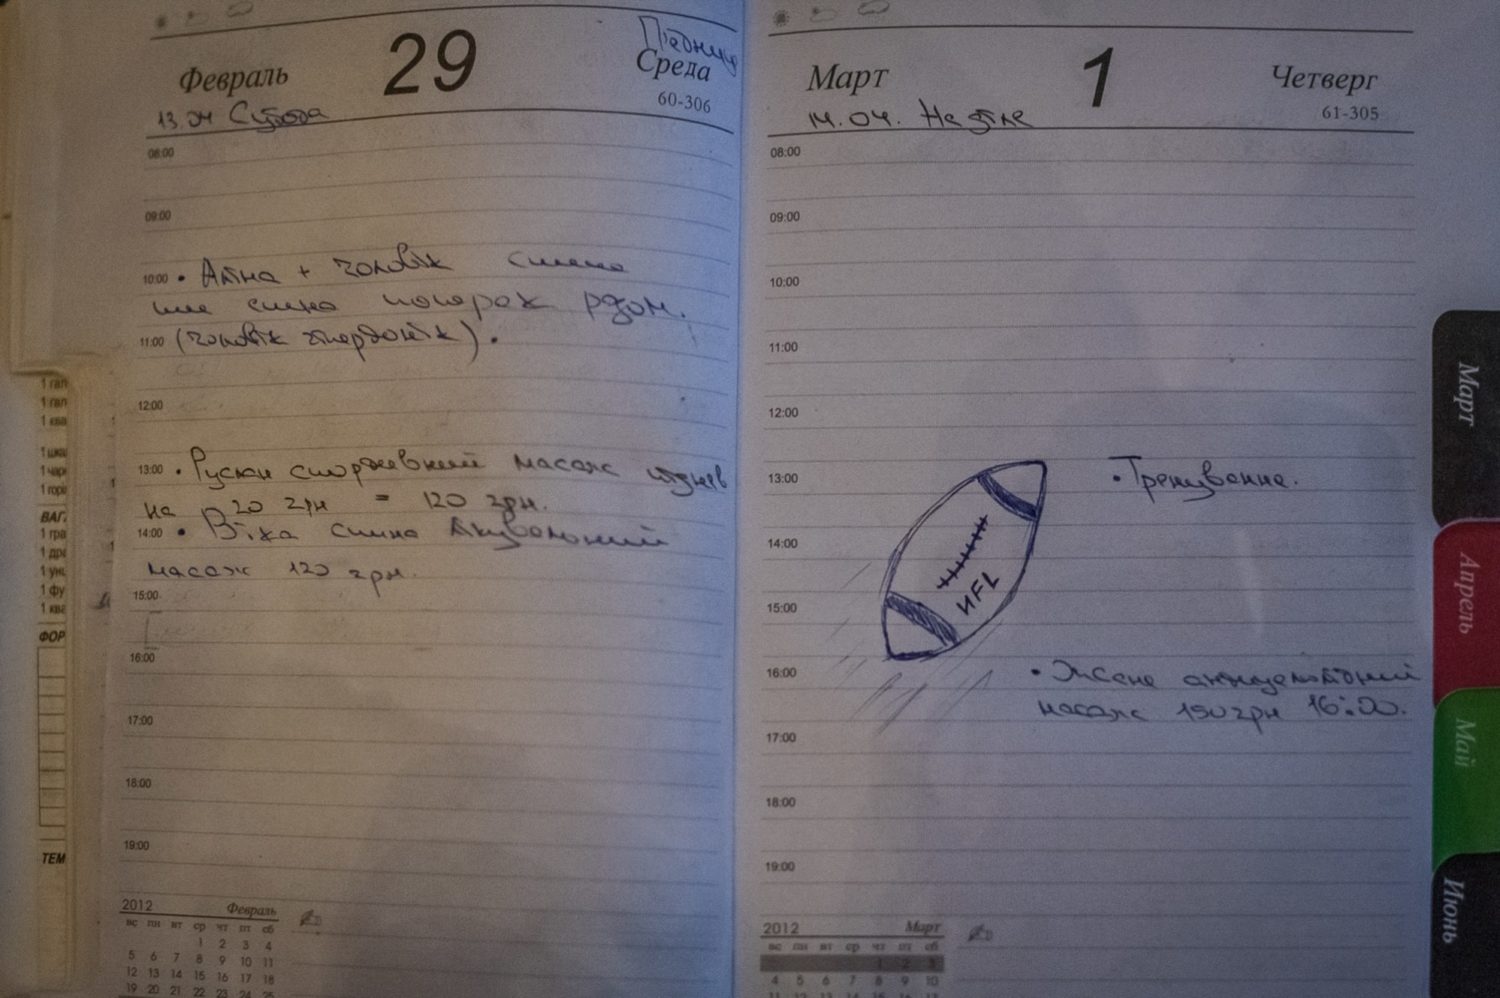 Февраль 29 Среда
60-306
13.04 Субота
08:00
09:00
10:00 • Аліна + чоловік спина
спина поперек рядом.
11:00 (чоловік )
12:00
13:00 • Руслан масаж
на 20 грн = 120 грн.
14:00 • Віка спина лікувальний
масаж 120 грн.
15:00
16:00
17:00
18:00
19:00
2012 Февраль
вс пн вт ср чт пт сб
1 2 3 4
5 6 7 8 9 10 11
12 13 14 15 16 17 18
19 20 21 22 23 24 25
1 гал
1 гал
1 ква
1 гори
ВАГ
1 гра
1 дра
1 унц
1 фу
1 ква
ФОР
ТЕМ
Март 1 Четверг
61-305
14.04. Неділя
08:00
09:00
10:00
11:00
12:00
13:00 • Тренування.
14:00
NFL
15:00
16:00 • Жене антицелюлітний
масаж 150 грн 16:00.
17:00
18:00
19:00
2012 Март
вс пн вт ср чт пт сб
1 2 3
4 5 6 7 8 9 10
Март
Апрель
Май
Июнь